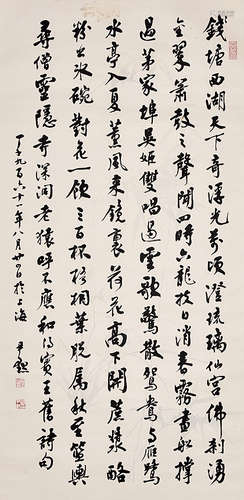 錢塘西湖天下奇浮光萬頃澄琉璃仙宮佛剎湧
金翠簫鼓之聲聞四時六龍扶日消香霧畫船撐
過第家埠吳姬雙唱遏雲歌驚散鴛鴦與雁鷺
水亭入夏薰風來鏡裏荷花高下開蔗漿酪
粉出氷碗對花一飲三百杯梧桐葉脫屬秋至籃輿
尋僧靈隱寺深洞老猿呼不應和得賓王舊詩句
一千九百六十一年八月廿日於上海 尹默